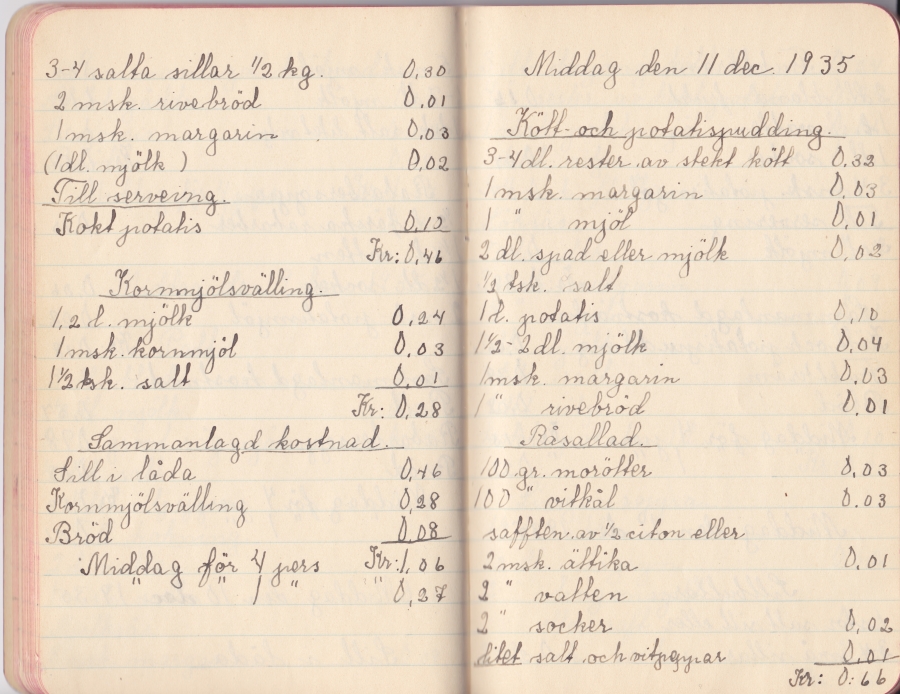 3-4 salta sillar 1/2 kg. 0,30
2 msk. rivebröd 0,01
1 msk. margarin 0,03
(1 dl. mjölk ) 0,02
Till serveing.
Kokt potatis 0,10
Kr: 0,46
Kornmjölsvälling.
1,2 l. mjölk 0,24
1 msk. kornmjöl 0,03
1 1/2 tsk. salt 0,01
Kr: 0,28
Sammanlagd kostnad.
Sill i låda 0,46
Kornmjölsvälling 0,28
Bröd 0,08
Middag för 4 pers Kr: 1,06
" " 1 " " 0,27
Middag den 11 dec. 1935
Kött- och potatispudding.
3-4 dl. rester av stekt kött 0,32
1 msk. margarin 0,03
1 " mjöl 0,01
2 dl. spad eller mjölk 0,02
1/2 tsk. salt
1 l. potatis 0,10
1 1/2-2 dl. mjölk 0,04
1 msk. margarin 0,03
1 " rivebröd 0,01
Råsallad.
100 gr. morötter 0,03
100 " vitkål 0,03
safften av 1/2 citon eller
2 msk. ättika 0,01
2 " vatten
2 " socker 0,02
litet salt och vitpeppar 0,01
Kr: 0:66